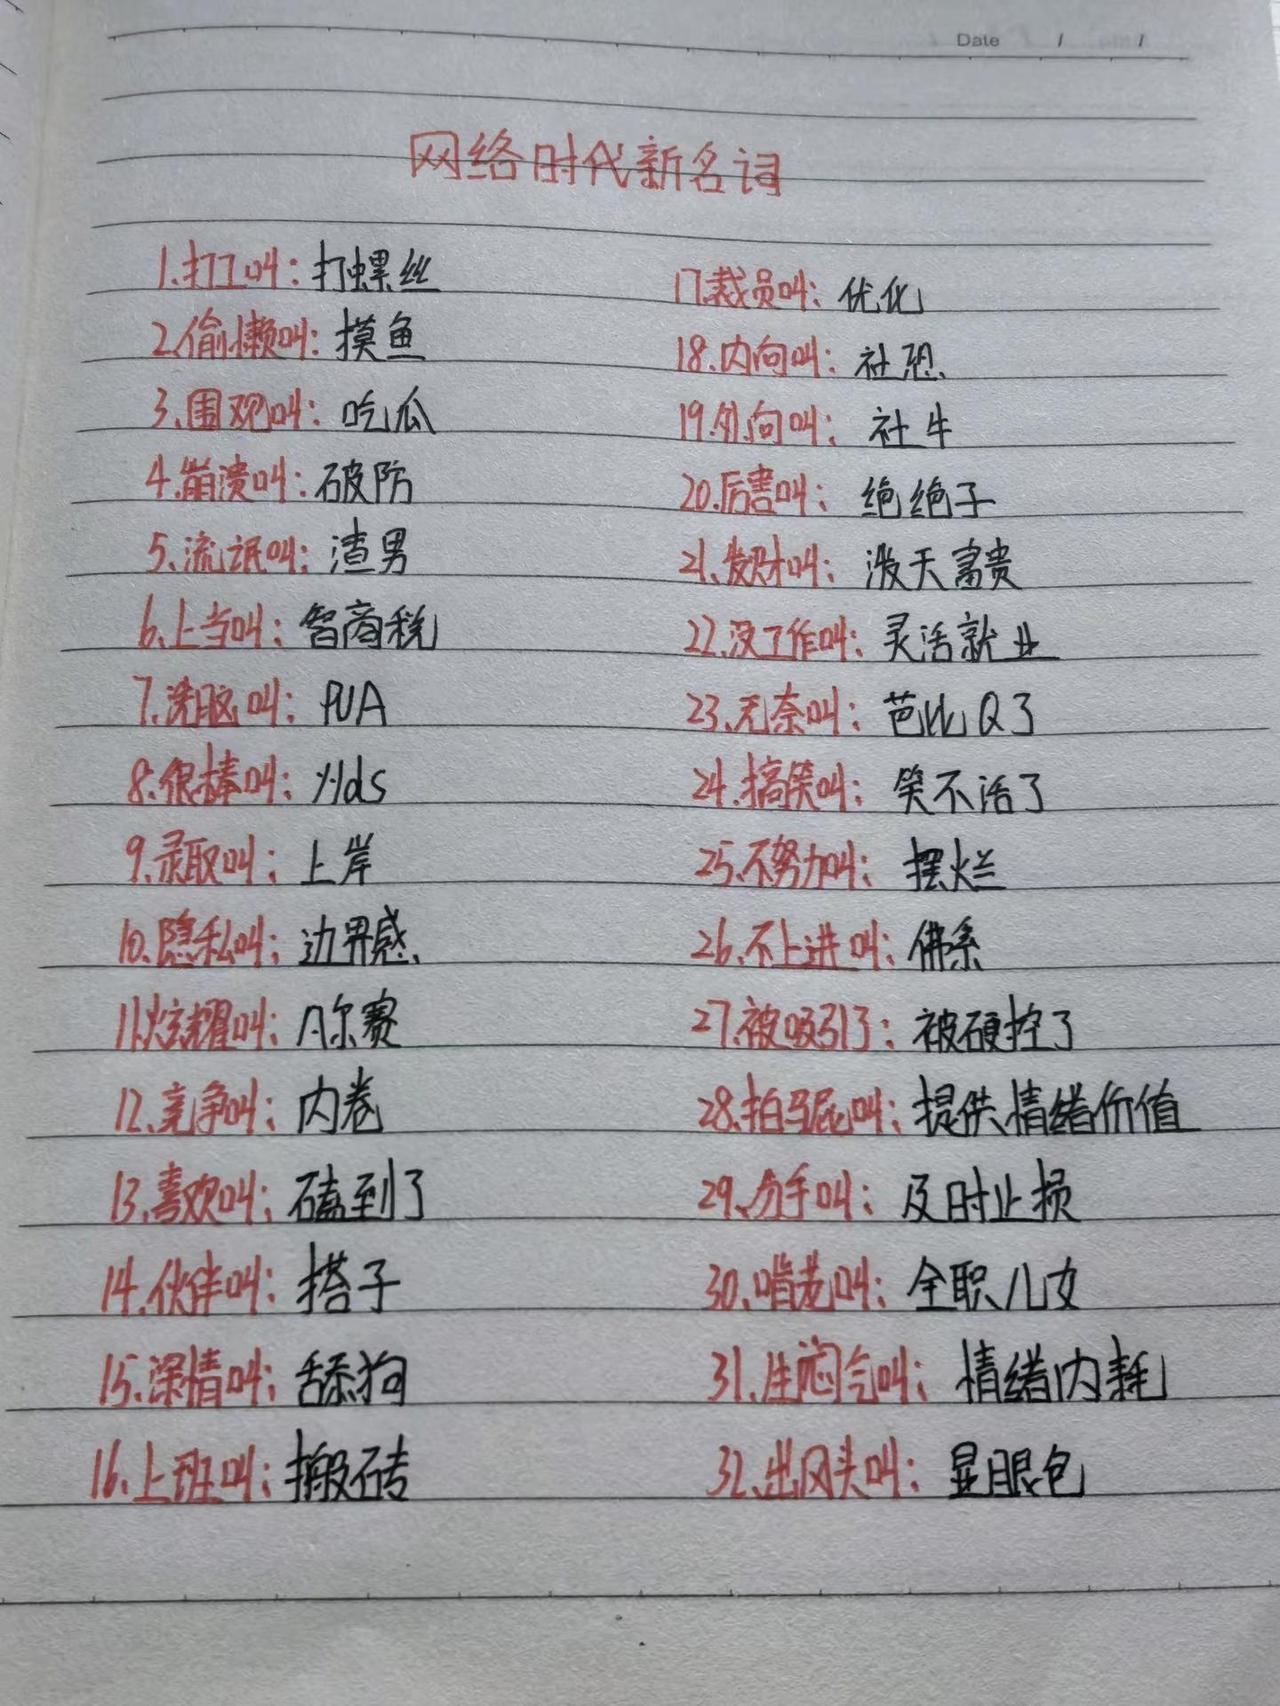 Date / /
网络时代新名词
1.打工叫：打螺丝
2.偷懒叫：摸鱼
3.围观叫：吃瓜
4.崩溃叫：破防
5.流氓叫：渣男
6.上当叫：智商税
7.洗脑叫：PUA
8.很棒叫：yyds
9.录取叫：上岸
10.隐私叫：边界感
11.炫耀叫：凡尔赛
12.竞争叫：内卷
13.喜欢叫：磕到了
14.伙伴叫：搭子
15.深情叫：舔狗
16.上班叫：搬砖
17.裁员叫：优化
18.内向叫：社恐
19.外向叫：社牛
20.厉害叫：绝绝子
21.发财叫：泼天富贵
22.没工作叫：灵活就业
23.无奈叫：芭比Q了
24.搞笑叫：笑不活了
25.不努力叫：摆烂
26.不上进叫：佛系
27.被吸引了：被硬控了
28.拍马屁叫：提供情绪价值
29.分手叫：及时止损
30.啃老叫：全职儿女
31.生闷气叫：情绪内耗
32.出风头叫：显眼包